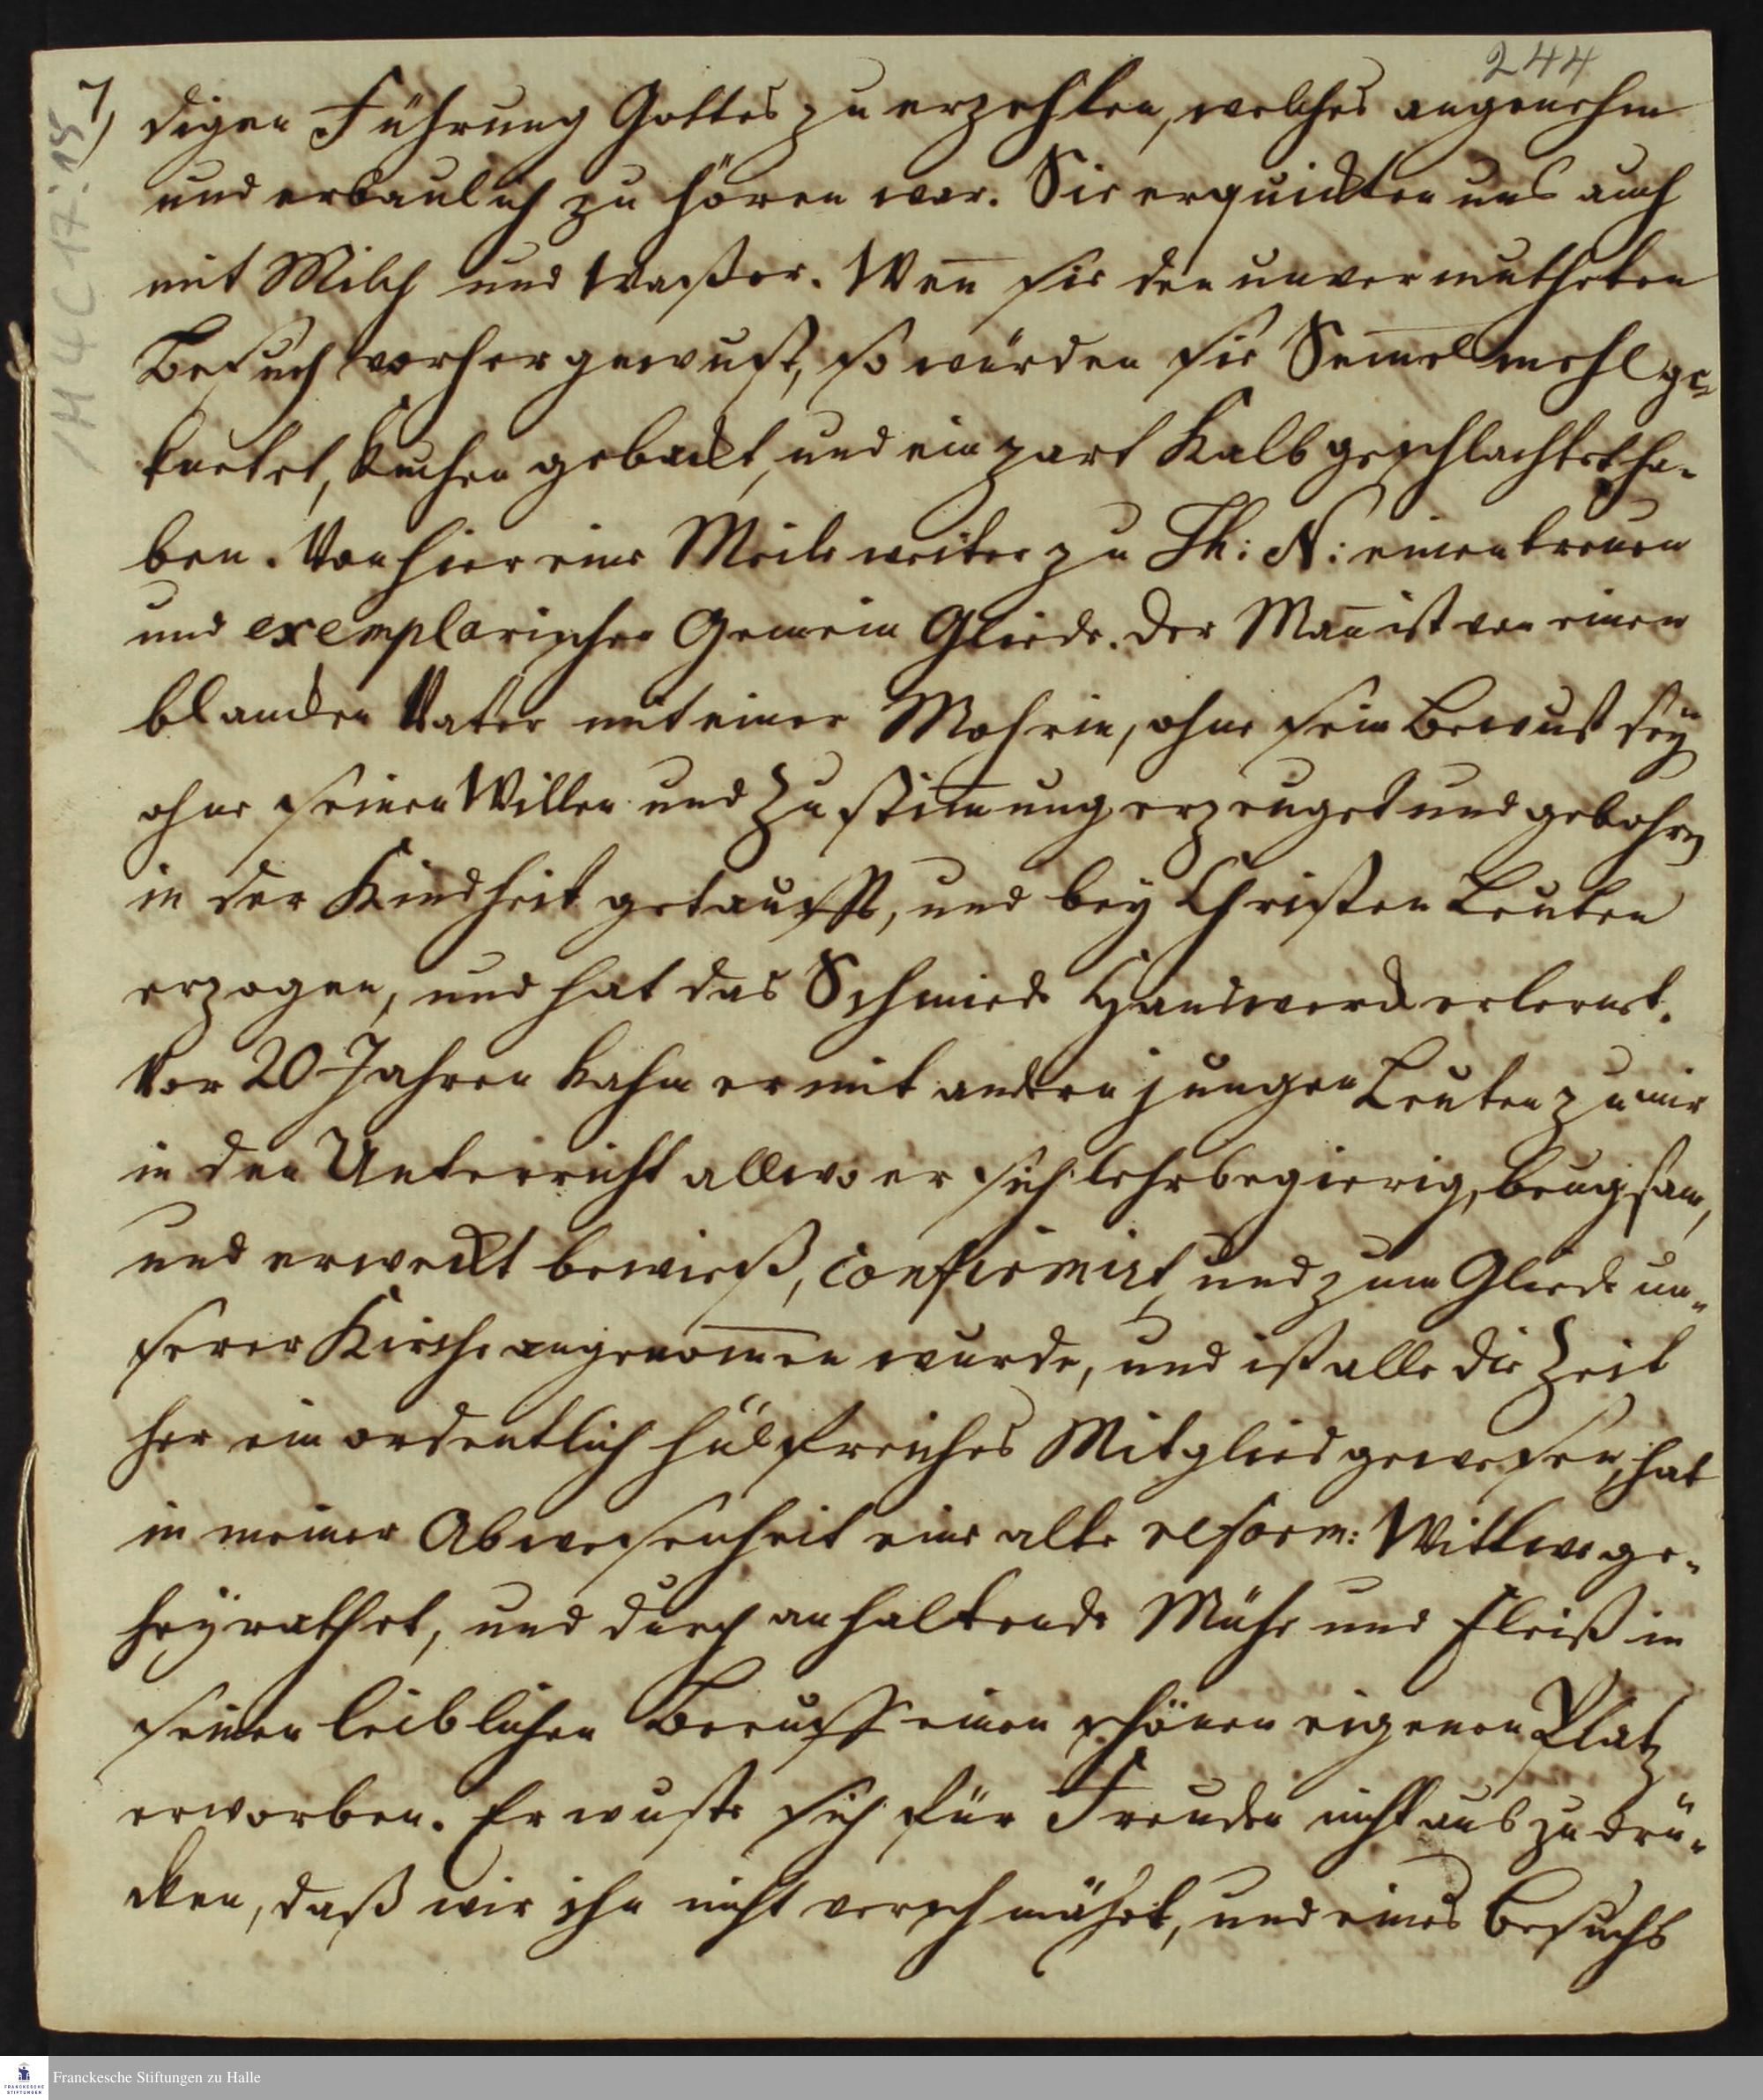 244
7)
1H 4 C 17 : 15
digen Führung Gottes zu erzehlen, welches angenehm
und erbaulich zu hören war. Sie erquickten uns auch
mit Milch und Waßer. Wen̄ sie den unvermutheten
Besuch vorher gewust, so würden sie Sem̄elmehl ge-
knetet, Kuchen gebackt, und ein zart Kalb geschlachtet ha-
ben. Von hier eine Meile weiter zu Th: N: einen treuen
und exemplarischen Gemein Gliede. Der Man̄ ist von einem
blancken Vater mit einer Mohrin, ohne sein Bewust seÿ
ohne seinen Willen und Zustim̄ung erzeuget und gebohrn
in der Kindheit getaufft, und bey Christen Leuten
erzogen, und hat das Schmiede Handwerck erlernet.
Vor 20 Jahren kahm er mit andern jungen Leuten zu mir
in den Unterricht allwo er sich lehrbegierig, beugsam,
und erweckt bewieß, confirmirt, und zum Gliede un-
serer Kirche angenom̄en wurde, und ist alle die Zeit
her ein ordentlich hülfreiches Mitglied gewesen, hat
in meiner Abwesenheit eine alte reform: Wittwe ge-
heyrathet, und durch anhaltende Mühe und Fleiß in
seinen leiblichen Beruff einen schönen eigenen Platz
erworben. Er wuste sich für Freuden nicht auszudrü-
cken, daß wir ihn nicht verschmähet, und eines Besuchs
Franckesche Stiftungen zu Halle
FRANCKESCHE
STIFTUNGEN